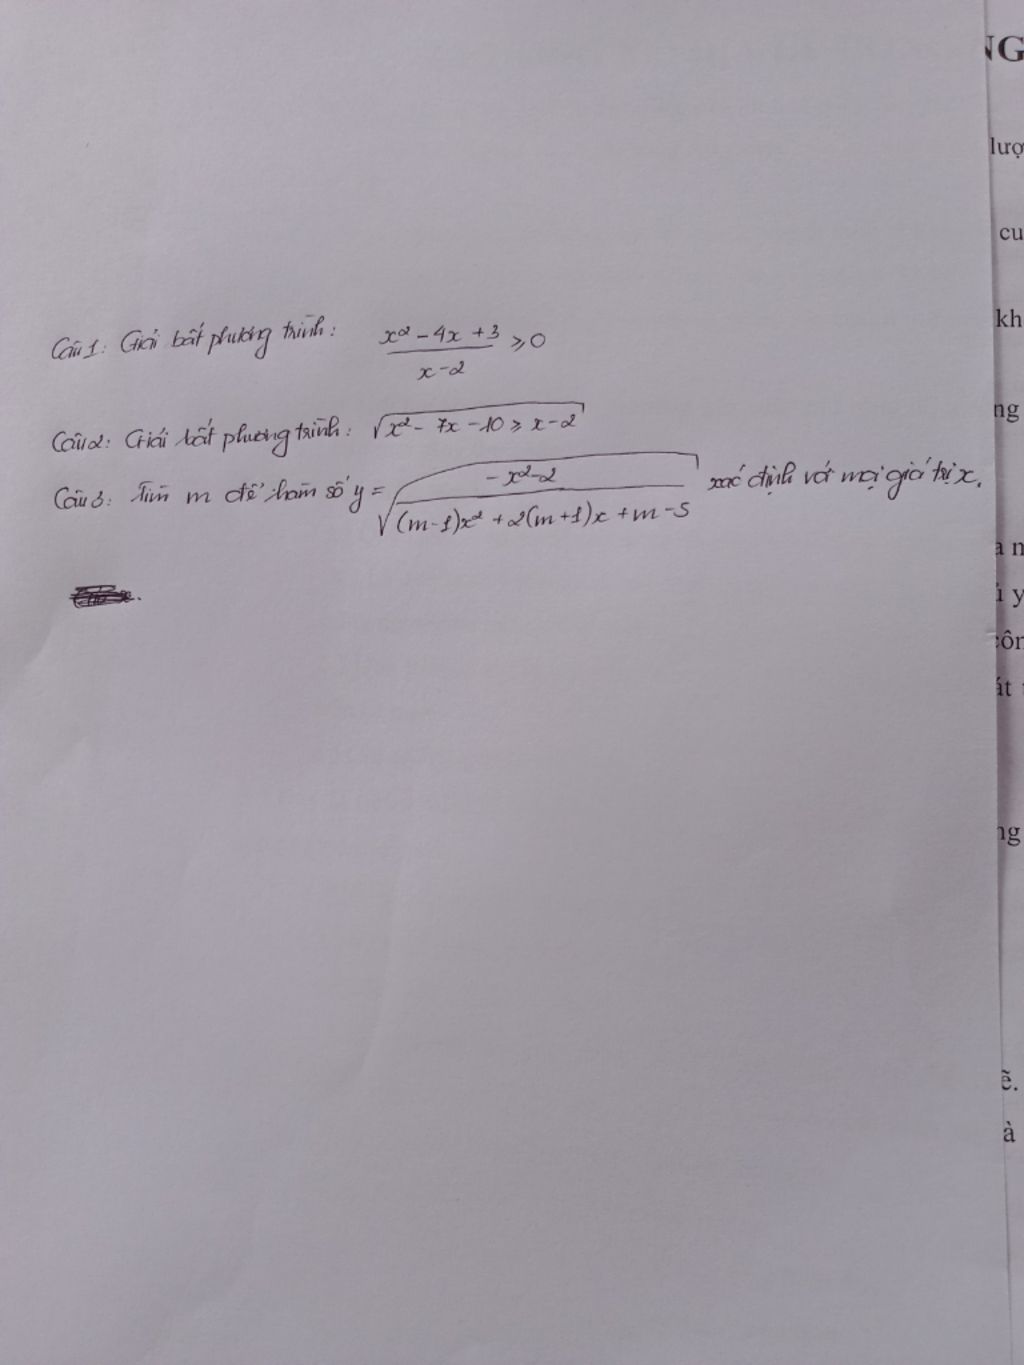 Câu 1: Giải bất phương trình: \frac{x^2 - 4x + 3}{x - 2} ⩾ 0
Câu 2: Giải bất phương trình: \sqrt{x^2 - 7x - 10 ⩾ x - 2}
Câu 3: Tìm m để hàm số y = \sqrt{\frac{-x^2 - 2}{(m-1)x^2 + 2(m+1)x + m - 5}} xác định với mọi giá trị x.
NG
lượ
cu
kh
ng
a n
côn
át
ng
ẽ.
à